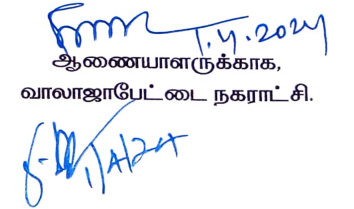 1.4.2024
ஆணையாளருக்காக,
வாலாஜாபேட்டை நகராட்சி.
1/4/24